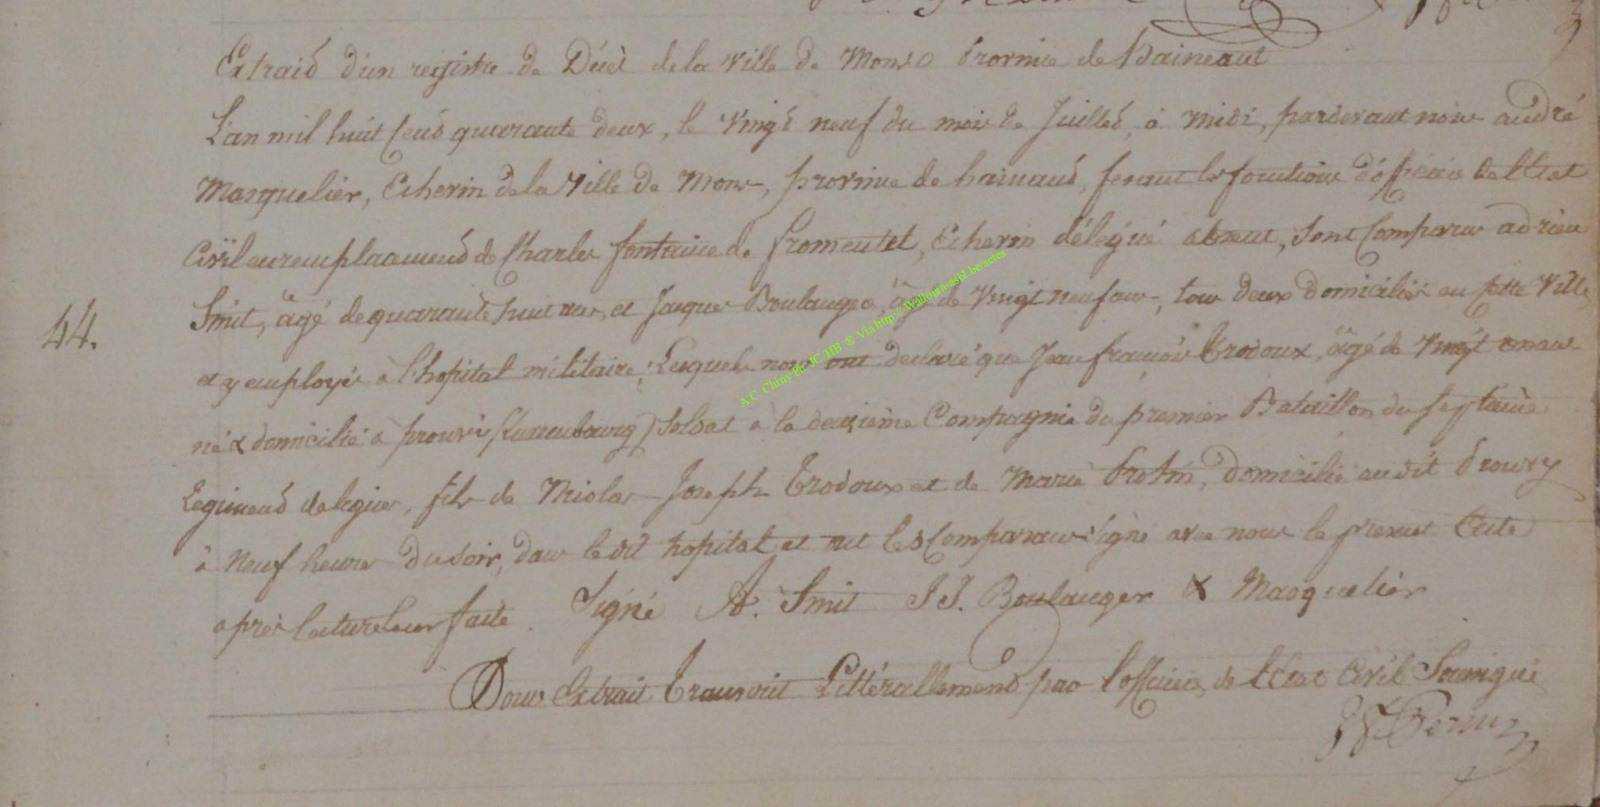 Extrait d'un registre de Décès de la Ville de Mons Province de Haineaut
L'an mil huit Cent quarante deux, le Vingt neuf du mois de Juillet, à Midi, pardevant nous andré
Masquelier, Echevin de la Ville de Mons, province de hainaut, fesant les fonctions d'officier de l'Etat
Civil en remplacement de Charles fontaine de fromentel, Echevin délégué absent, sont Comparus adrien
Smit, âgé de quarante huit ans, et Jacques Boulanger, âgé de Vingt neuf ans, tous deux domiciliés en cette Ville
44.
et y employés à l'hopital militaire; Lesquels nous ont declaré que Jean françois Trodoux, âgé de Vingt ans
né & domicilié à prouvi (Luxembourg) Soldat à la deuxième Compagnie du premier Bataillon du septième
Régiment de ligne, fils de Nicolas Joseph Trodoux et de Marie domicilié audit Prouvy
à Neuf heures du soir, dans le dit hopital, et ont les Comparans signé avec nous le présent acte
après lecture leur faite. Signé A. Smit J J. Boulanger & Masquelier
Pour Extrait Transcrit Littérallement par l'officier de l'Etat Civil Soussigné
A.C. Chiny-Ph. JC HB & Via http://Wallonica